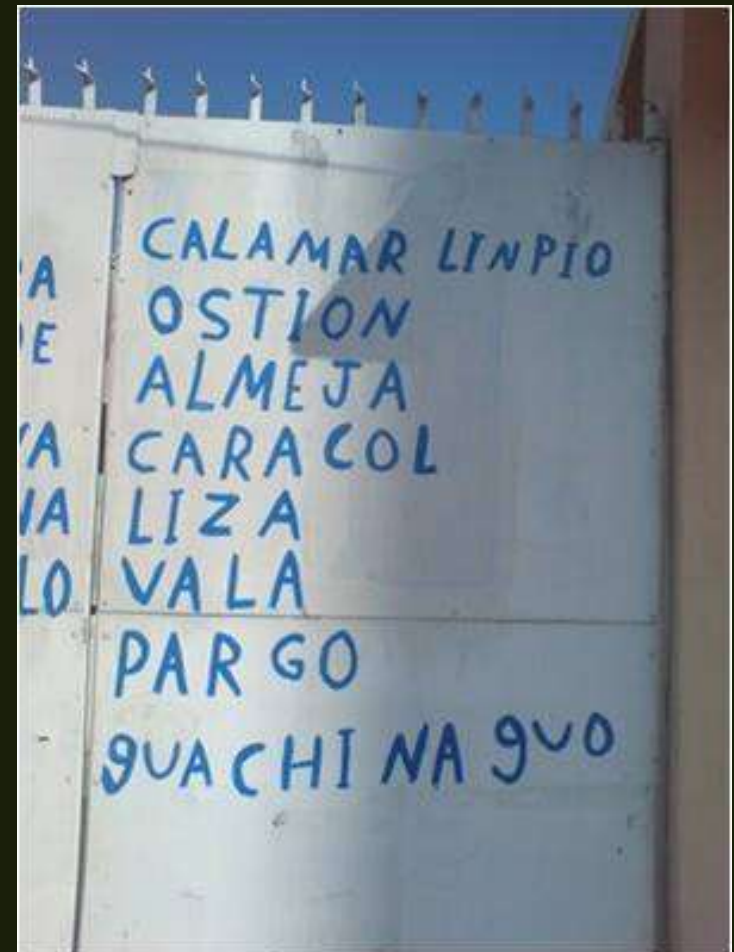 CALAMAR LINPIO
OSTION
ALMEJA
CARACOL
LIZA
VALA
PARGO
guACHINAguO